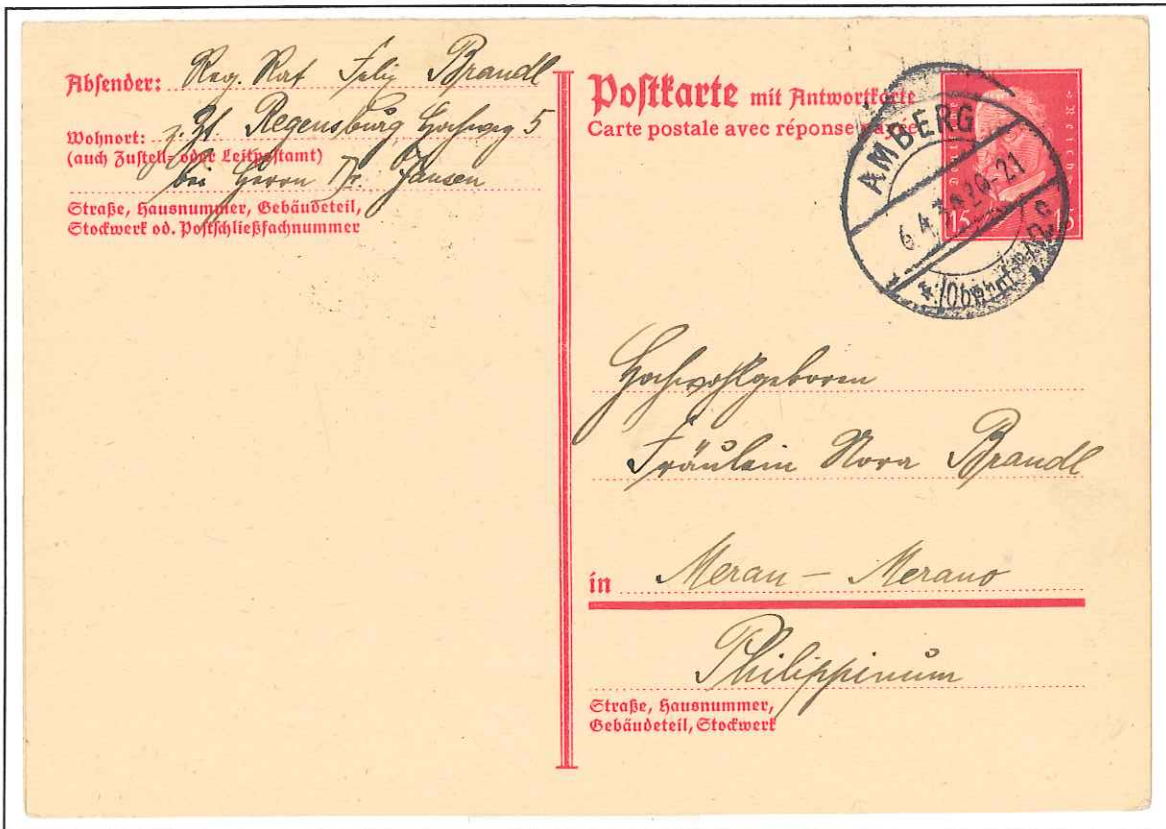 Absender: Reg. Rat Felix Brandl
Wohnort: z. Zt. Regensburg Hochweg 5
(auch Zustell- oder Leitpostamt)
bei Herrn Dr. Jansen
Straße, Hausnummer, Gebäudeteil,
Stockwerk od. Postschließfachnummer
Postkarte mit Antwortkarte
Carte postale avec réponse payée
AMBERG
15 15
Hochwohlgeboren
Fräulein Nora Brandl
in Meran – Merano
Philippinum
Straße, Hausnummer,
Gebäudeteil, Stockwerk